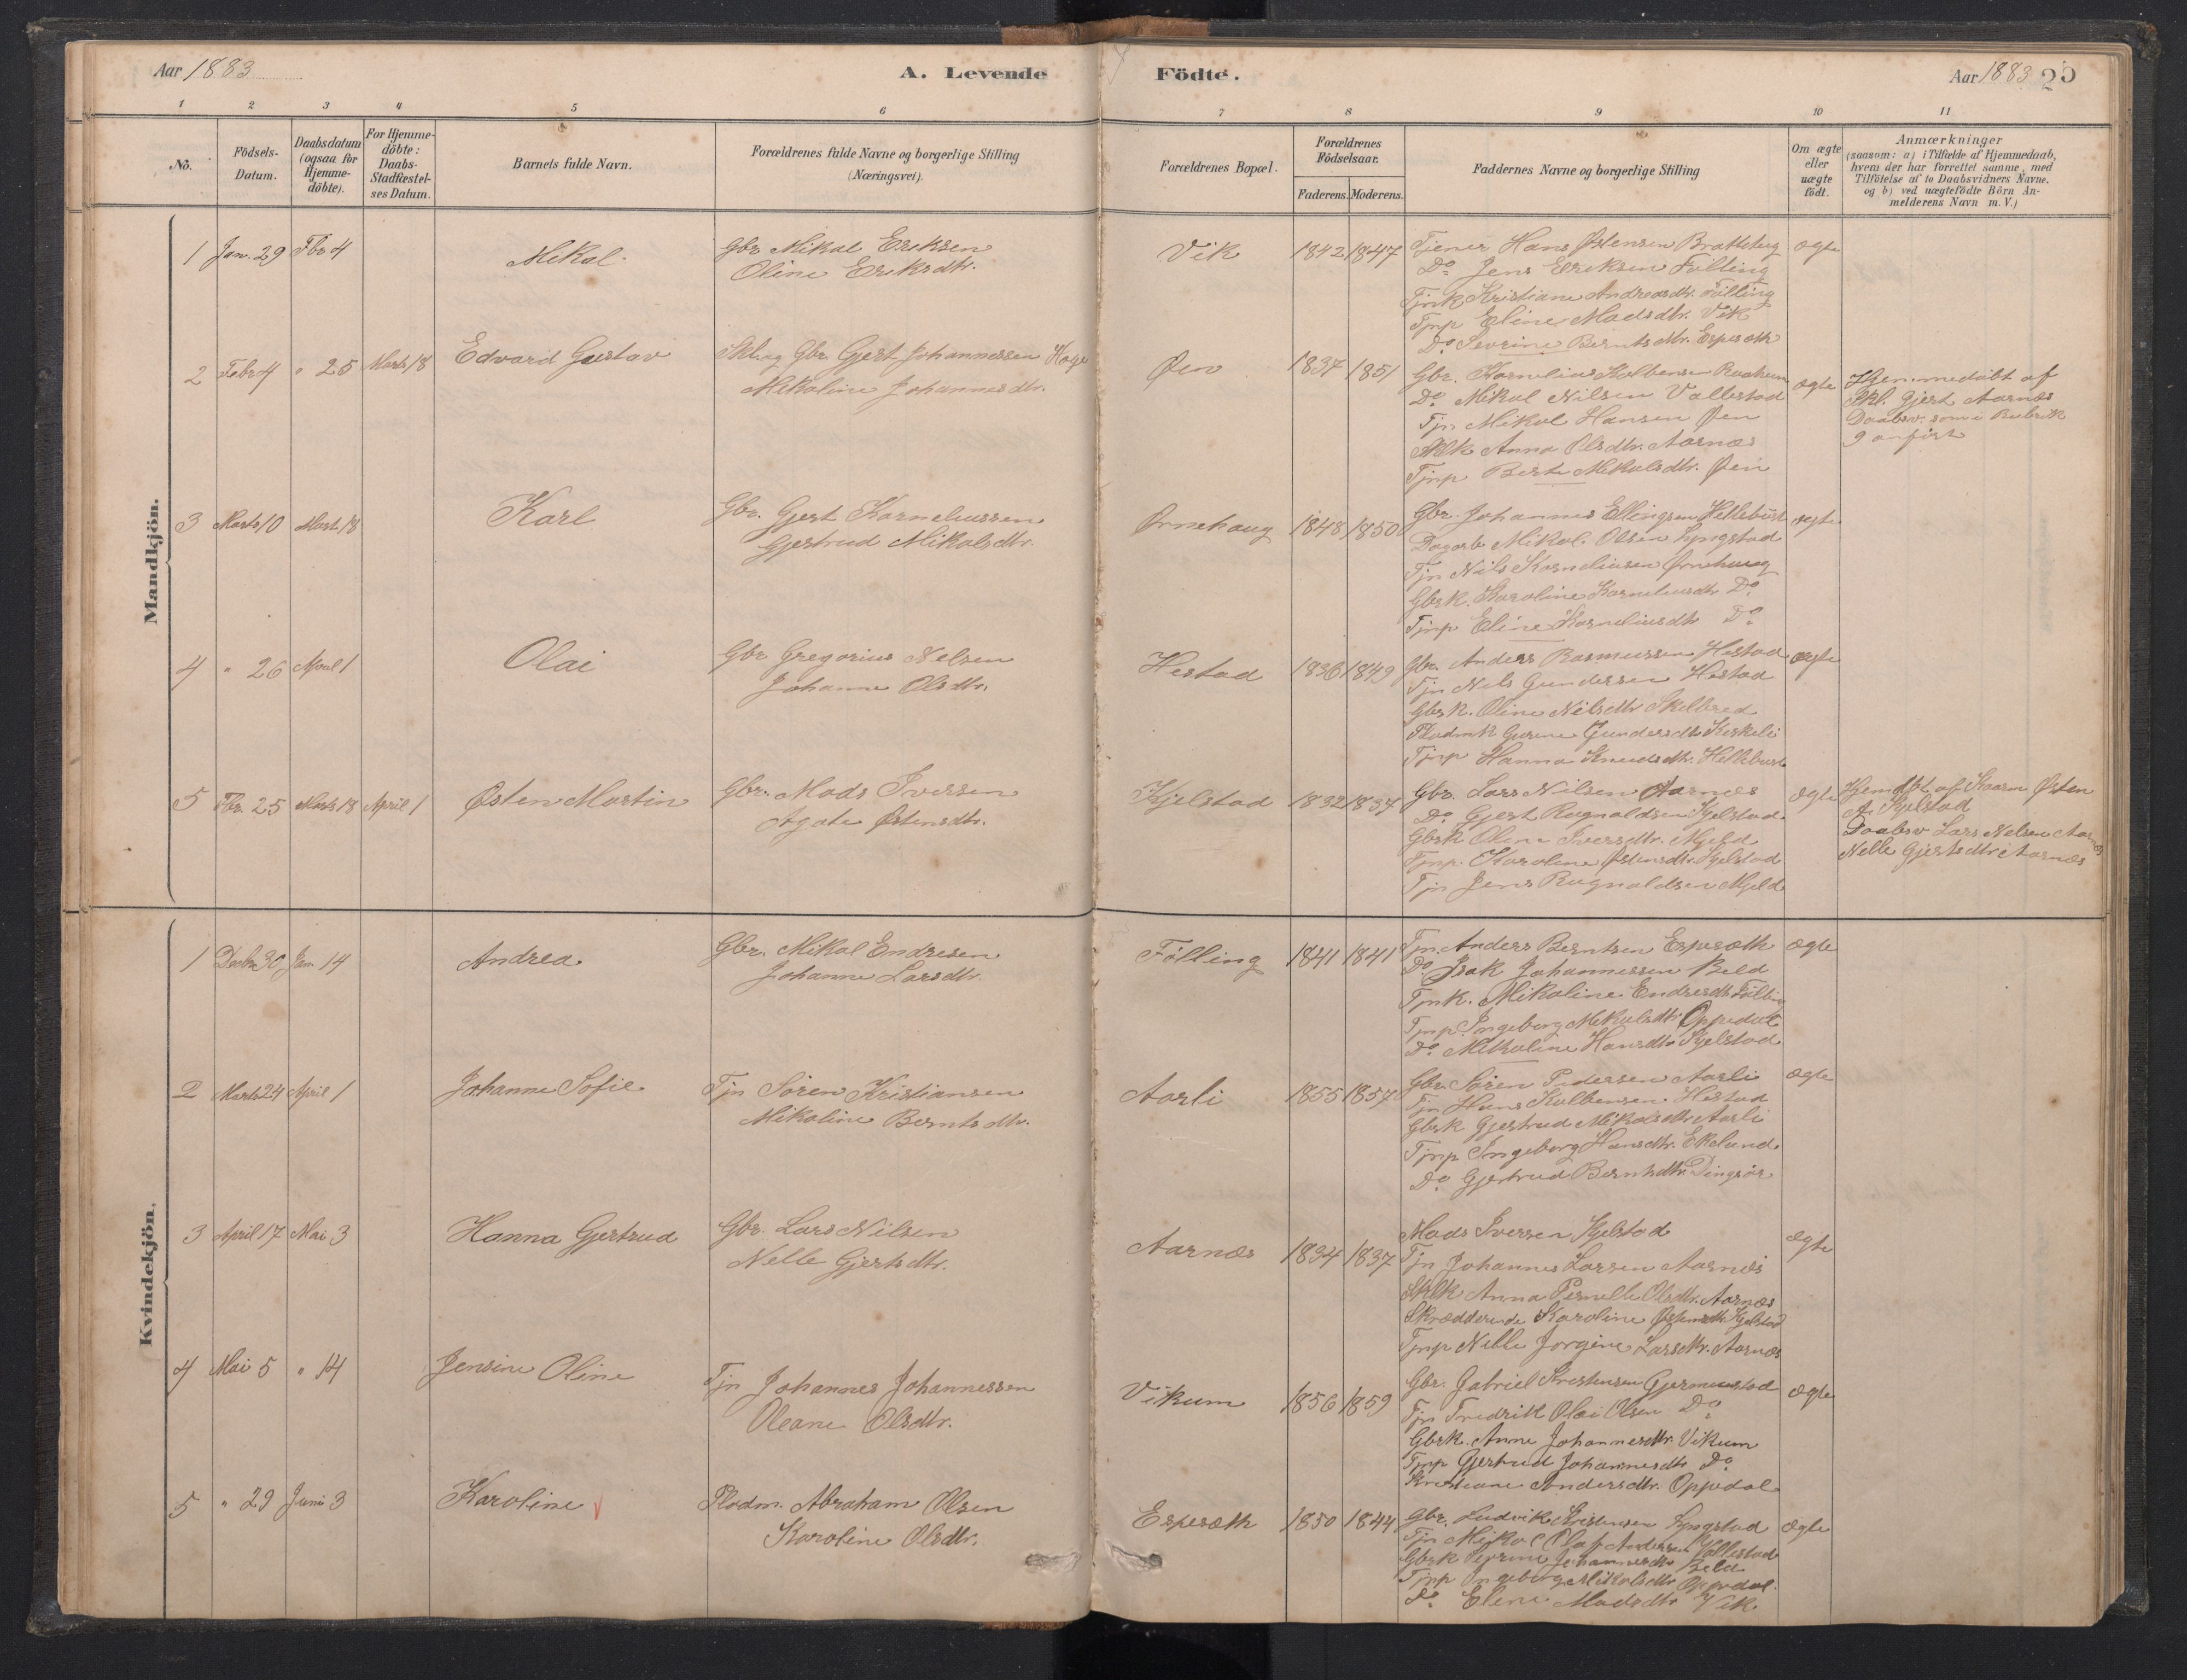 Aar 1883
A. Levende
Födte.
Aar 1883 20
1 2 3 4 5 6 7 8 9 10 11
No.
Födsels-
Datum.
Daabsdatum
(ogsaa for
Hjemme-
döbte).
For Hjemme-
döbte:
Daabs-
Stadfæstel-
ses Datum.
Barnets fulde Navn.
Forældrenes fulde Navne og borgerlige Stilling
(Næringsvei).
Forældrenes Bopæl.
Forældrenes
Födselsaar.
Faderens. Moderens.
Faddernes Navne og borgerlige Stilling
Om ægte
eller
uægte
födt.
Anmærkninger
(saasom: a) i Tilfælde af Hjemmedaab,
hvem der har forrettet samme, med
Tilföielse af to Daabsvidners Navne.
og b) ved uægtefödte Börn An-
melderens Navn m. V.)
Mandkjön.
1 Jan. 29 Fbr 4
Mikal
Gbr. Mikal Eriksen
Oline Eriksdtr.
Vik 1842 1847
Tjener Hans Østensen Bratteteig
Do Jens Eriksen Fölling
Tjnk Kristiane Andreasdtr. Fölling
Tjnp Eline Madsdtr. Vik
Do Severine Berntsdtr. Espesæth
ægte
2 Febr 4 " 25 Marts 18
Edvard Gustav
Skl. og Gbr. Gjert Johannessen Hage
Mikaline Johannesdtr.
Øen 1837 1851
Gbr. Kornelius Kolbensen Raaheim
Do Mikal Nilsen Vallestad
Tjn Mikal Hansen Øen
Sklk Anna Olsdtr. Aarnæs
Tjnp Berte Mikalsdtr. Øen
ægte
Hjemmedöbt af
Skl. Gjert Aarnæs
Daabsv. som i Rubrik
9 anfört
3 Marts 10 Marts 18
Karl
Gbr. Gjert Korneliussen
Gjertrud Mikalsdtr.
Ørnehaug 1848 1850
Gbr. Johannes Ellingsen Hellebust
Dagarb Mikal Olsen Lyngstad
Tjn Nils Korneliusen Ørnehaug
Gbrk. Karoline Korneliusdtr Do
Tjnp Eline Korneliusdtr Do
ægte
4 " 26 April 1
Olai
Gbr Gregorius Nelsen
Johanne Olsdtr.
Hestad 1836 1849
Gbr. Anders Rasmussen Hestad
Tjn Nils Gundersen Hestad
Gbrk. Oline Nilsdtr Skilbred
Pladmk Gurine Gundersdtr
Tjnp Hanna Knudsdtr. Hellebust
ægte
5 Fbr. 25 Marts 18 April 1
Østen Martin
Gbr. Mads Iversen
Agate Østensdtr.
Kjelstad 1832 1837
Gbr. Lars Nilsen Aarnæs
Do Gjert Ragnaldsen Kjelstad
Gbrk Oline Iversdtr. Mjeld
Tjnp. Karoline Østensdtr. Kjelstad
Tjn Jens Ragnaldsen Mjeld
ægte
Hjemdbt af Østen
A. Kjelstad
Daabsv Lars Nelsen Aarnæs
Nelle Gjertsdtr Aarnæs
Kvindekjön.
1 Decbr 30 Jan 14
Andrea
Gbr. Mikal Endresen
Johanne Larsdtr.
Fölling 1841 1841
Tjn. Anders Berntsen Espesæth
Do Isak Johannessen Beld
Tjnk. Mikaline Endresdtr Fölling
Tjnp. Ingeborg Mikalsdtr Oppedal
Do Mikaline Hansdtr Kjelstad
ægte
2 Marts 24 April 1
Johanne Sofie
Tjn Sören Kristiansen
Mikaline Berntsdtr.
Aarli 1855 1857
Gbr. Sören Pedersen Aarli
Tjn Hans Kolbensen Hestad
Gbrk Gjertrud Mikalsdtr Aarli
Tjnp Ingeborg Hansdtr. Ekeland
Do Gjertrud Berntsdtr. Dingsör
ægte
3 April 17 Mai 3
Hanna Gjertrud
Gbr. Lars Nilsen
Nelle Gjertsdtr.
Aarnæs 1834 1837
Mads Iversen Kjelstad
Tjn Johannes Larsen Aarnæs
Sklk Anna Pernelle Olsdtr. Aarnæs
Skrædderinde Karoline Østensdtr Kjelstad
Tjnp Nelle Jörgine Larsdtr. Aarnæs
ægte
4 Mai 5 " 14
Jensine Oline
Tjn Johannes Johannessen
Oleane Olsdtr.
Vikum 1856 1859
Gbr. Gabriel Kristensen Gjermundstad
Tjn Fredrik Olai Olsen Do
Gbrk. Anne Johannesdtr. Vikum
Tjnp Gjertrud Johannesdtr Do
Kristiane Andersdtr. Oppedal
ægte
5 " 29 Juni 3
Karoline
Pladm. Abraham Olsen
Karoline Olsdtr.
Espesæth 1850 1844
Gbr. Ludvik Kristensen Lyngstad
Tjn Mikal Olaf Andersen Vallestad
Gbrk Severine Johannesdtr Beld
Tjnp Ingeborg Mikalsdtr Oppedal
Do Elene Madsdtr Vik
ægte